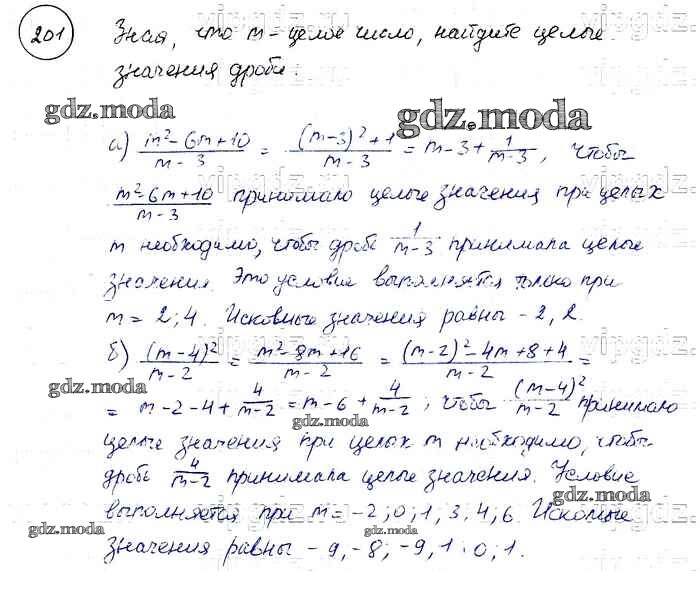 201 Зная, что m - целое число, найдите целые
значения дроби.
gdz.moda
gdz.moda
а) \frac{m²-6m+10}{m-3} = \frac{(m-3)²+1}{m-3} = m-3+\frac{1}{m-3}, чтобы
\frac{m²-6m+10}{m-3} принимало целые значения при целых
m необходимо, чтобы дробь \frac{1}{m-3} принимала целые
значения. Это условие выполняется только при
m = 2; 4. Искомые значения равны -2, 2.
б) \frac{(m-4)²}{m-2} = \frac{m²-8m+16}{m-2} = \frac{(m-2)²-4m+8+4}{m-2} =
gdz.moda
= m-2-4+\frac{4}{m-2} = m-6+\frac{4}{m-2}, чтобы \frac{(m-4)²}{m-2} принимало
gdz.moda
целые значения при целых m необходимо, чтобы
дробь \frac{4}{m-2} принимала целые значения. Условие
выполняется при m = -2; 0; 1, 3, 4; 6 Искомые
gdz.moda
gdz.moda
значения равны -9, -8; -9, 1; 0; 1.